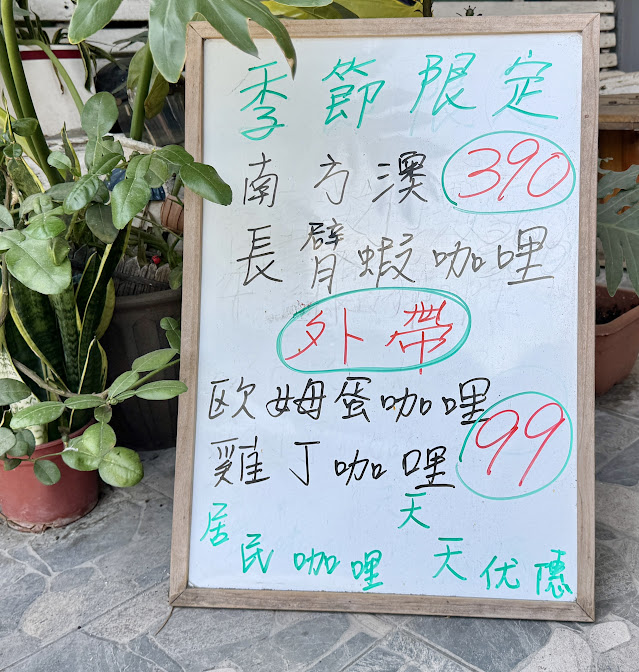 季節限定
南方澳 390
長臂蝦咖哩
外帶
歐姆蛋咖哩
雞丁咖哩 99
居民咖哩 天天优惠